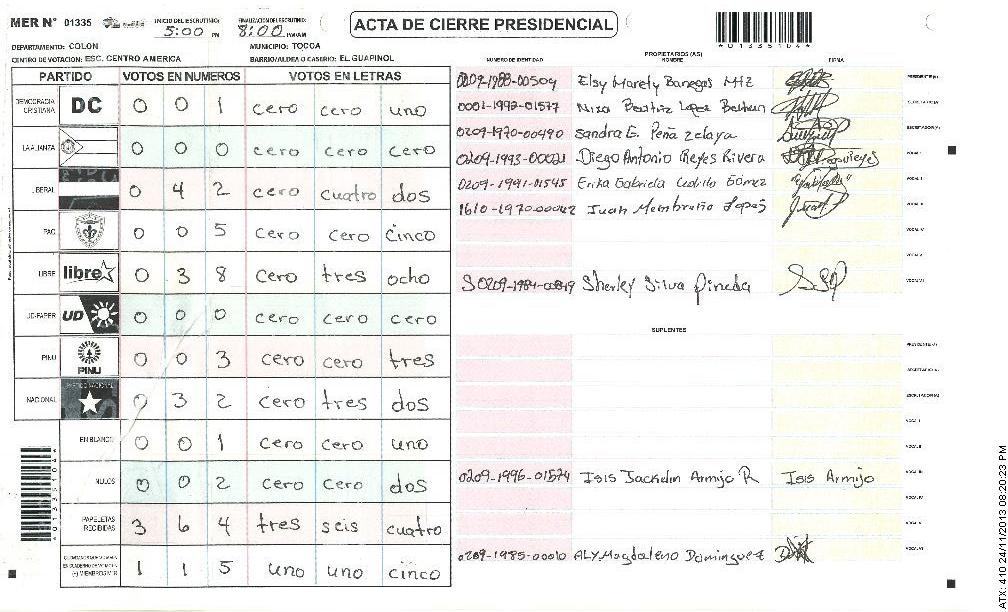 MER N° 01335
INICIO DEL ESCRUTINIO: 5:00 PM
FINALIZACION DEL ESCRUTINIO: 8:00 PM/AM
ACTA DE CIERRE PRESIDENCIAL
01335104
DEPARTAMENTO: COLON
MUNICIPIO: TOCOA
CENTRO DE VOTACION: ESC. CENTRO AMERICA
BARRIO/ALDEA O CASERIO: EL GUAPINOL
PARTIDO VOTOS EN NUMEROS VOTOS EN LETRAS
DEMOCRACIA CRISTIANA DC 0 0 1 cero cero uno
LA ALIANZA 0 0 0 cero cero cero
LIBERAL 0 4 2 cero cuatro dos
PAC 0 0 5 cero cero cinco
LIBRE libre 0 3 8 cero tres ocho
UD-FAPER UD 0 0 0 cero cero cero
PINU PINU 0 0 3 cero cero tres
NACIONAL PARTIDO NACIONAL 0 3 2 cero tres dos
EN BLANCO 0 0 1 cero cero uno
NULOS 0 0 2 cero cero dos
PAPELETAS RECIBIDAS 3 6 4 tres seis cuatro
1 1 5 uno uno cinco
01335104
PROPIETARIOS (AS)
NUMERO DE IDENTIDAD NOMBRE FIRMA
0209-1988-00509 Elsy Marety Banegas Mtz PRESIDENTE(A)
0001-1992-01577 SECRETARIO(A)
0209-1970-00490 Sandra E. Peña Zelaya ESCRUTADOR(A)
0209-1995-00021 Diego Antonio Reyes Rivera VOCAL I
0209-1991-01545 Erika Gabriela Gómez VOCAL II
1610-1970-00042 Juan Membraño Lopez VOCAL III
VOCAL IV
VOCAL V
0209-1984-00849 Sherley Silva Pineda VOCAL VI
SUPLENTES
PRESIDENTE(A)
SECRETARIO(A)
ESCRUTADOR(A)
VOCAL I
VOCAL II
0209-1996-01574 Isis Jackelin Armijo R Isis Armijo VOCAL III
VOCAL IV
VOCAL V
0209-1985-00010 ALY Magdaleno Dominguez VOCAL VI
ATX: 410 24/11/2013 08:20:23 PM